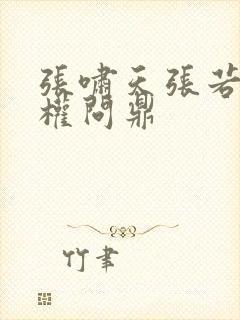 張嘯天張若
權問鼎
竹聿